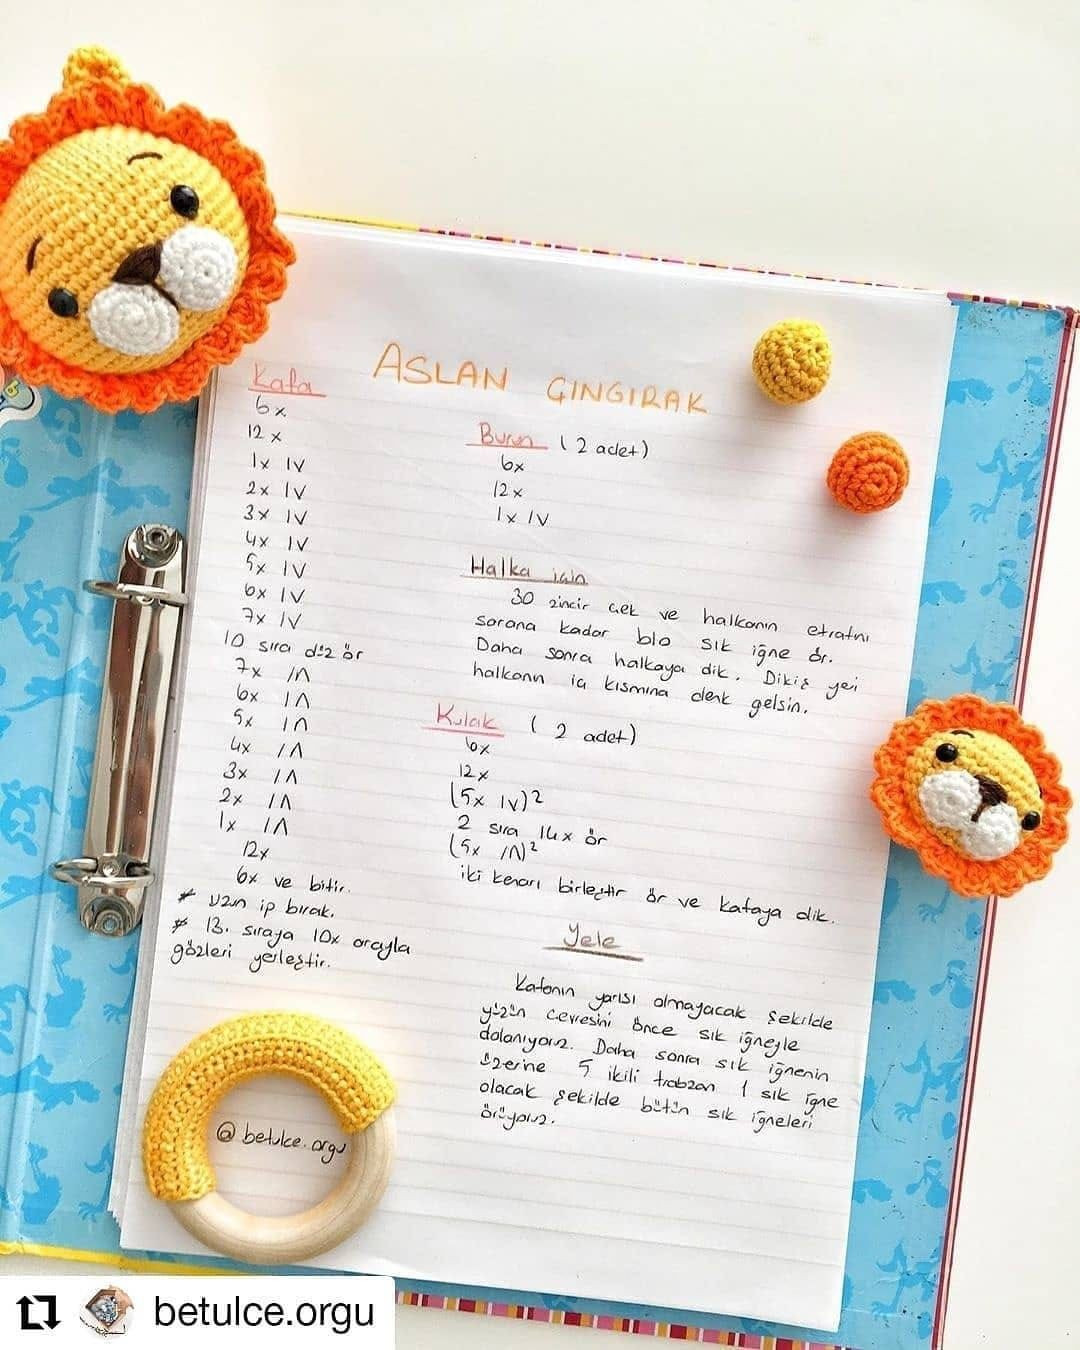 ASLAN ÇINGIRAK
Kafa
6x
12x
1x 1V
2x 1V
3x 1V
4x 1V
5x 1V
6x 1V
7x 1V
10 sıra düz ör
7x 1Λ
6x 1Λ
5x 1Λ
4x 1Λ
3x 1Λ
2x 1Λ
1x 1Λ
12x
6x ve bitir.
* uzun ip bırak.
* 13. sıraya 10x arayla
gözleri yerleştir.
Burun (2 adet)
6x
12x
1x 1V
Halka için
30 zincir çek ve halkanın etrafını
sarana kadar blo sık iğne ör.
Daha sonra halkaya dik. Dikiş yeri
halkanın iç kısmına denk gelsin.
Kulak (2 adet)
6x
12x
(5x 1V)2
2 sıra 14x ör
(5x 1Λ)2
iki kenarı birleştir ör ve kafaya dik.
Yele
Kafanın yarısı olmayacak şekilde
yüzün çevresini önce sık iğneyle
dolanıyoruz. Daha sonra sık iğnenin
üzerine 5 ikili trabzan 1 sık iğne
olacak şekilde bütün sık iğneleri
örüyoruz.
@betulce.orgu
betulce.orgu